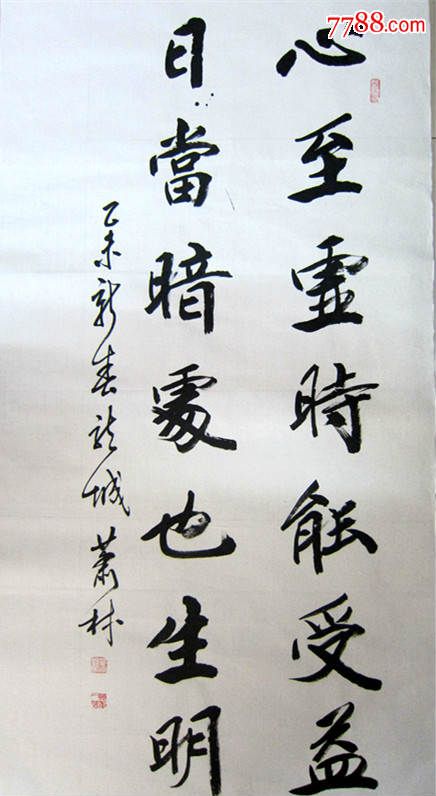 心至靈時能受益
日當暗處也生明
乙未新春龍城蕭林
7788.com